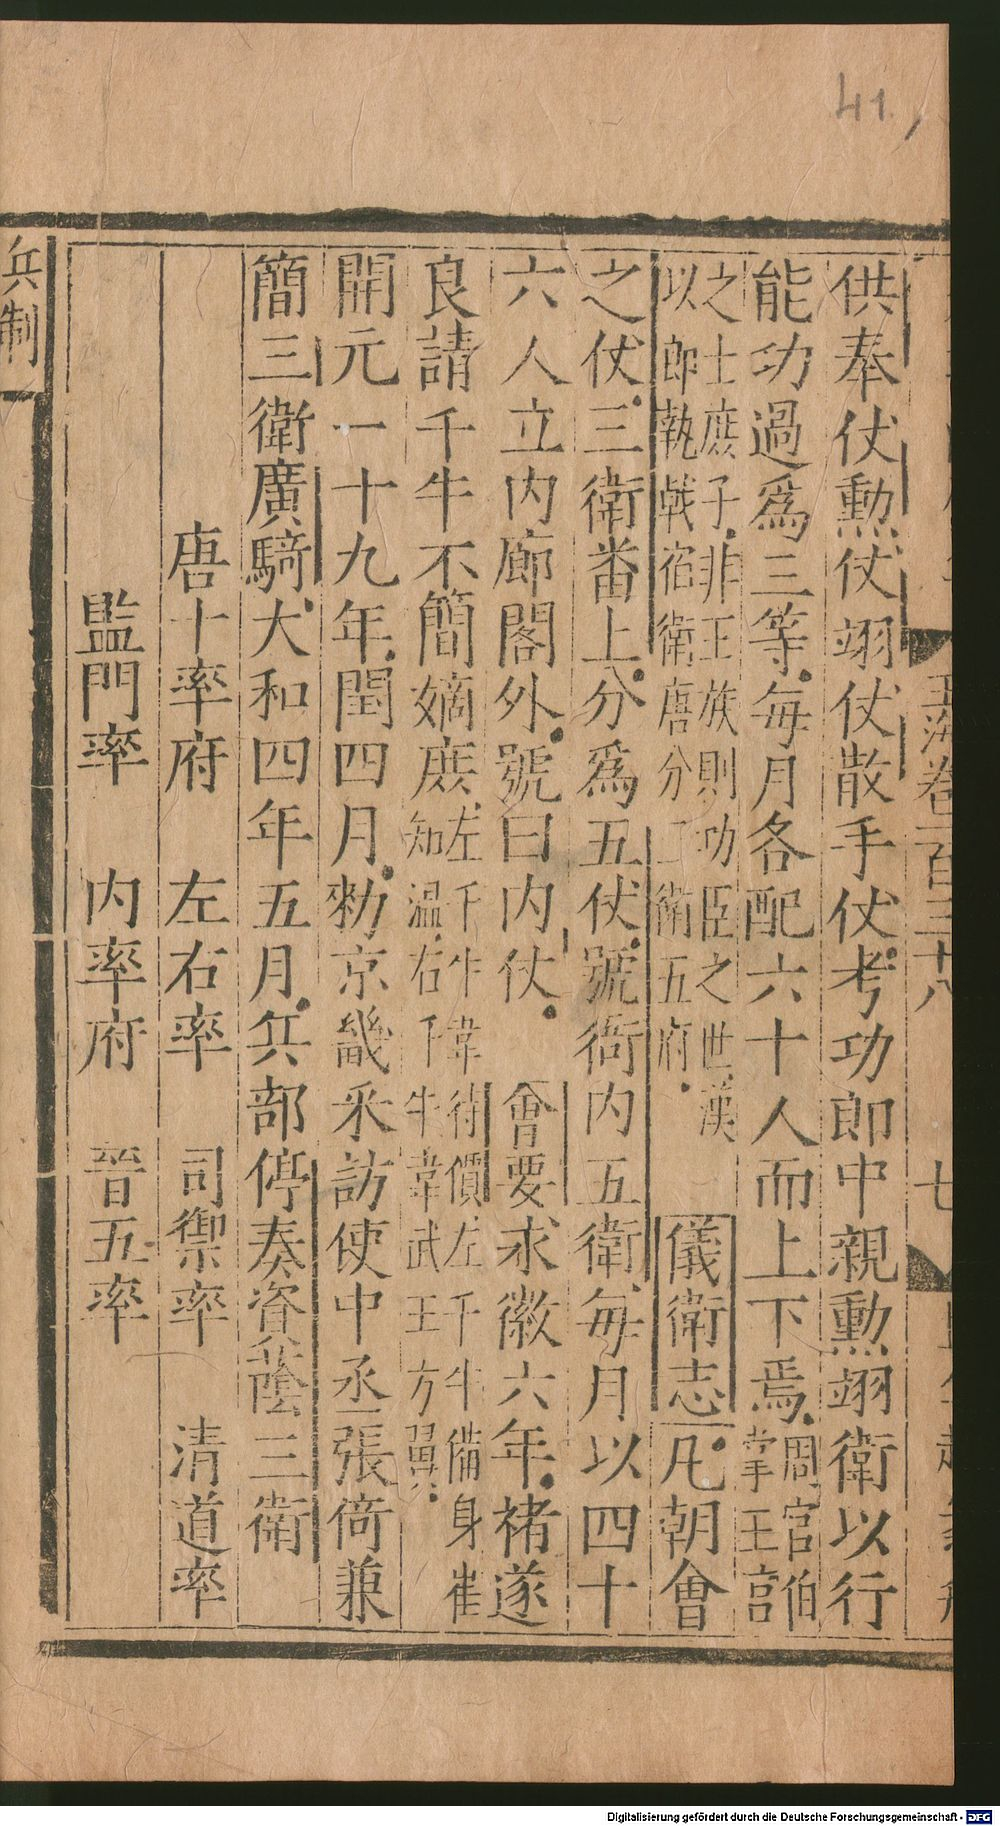 41
玉海卷一百三十八
七
供奉仗勲仗翊仗散手仗考功郎中親勲翊衛以行
能功過爲三等每月各配六十人而上下焉周官宮伯
掌王宮
之士庶子非王族則功臣之世漢
以郎執戟宿衛唐分三衛五府
儀衛志凡朝會
之仗三衛番上分爲五仗號衙内五衛每月以四十
六人立内廊閣外號曰内仗 會要永徽六年褚遂
良請千牛不簡嫡庶
左千牛韋待價左千牛備身崔
知温右千牛韋武王方翼
開元一十九年閏四月勑京畿采訪使中丞張倚兼
簡三衛廣騎大和四年五月兵部停奏資蔭三衛
唐十率府 左右率 司禦率 清道率
監門率 内率府 晉五率
兵制
Digitalisierung gefördert durch die Deutsche Forschungsgemeinschaft - DFG